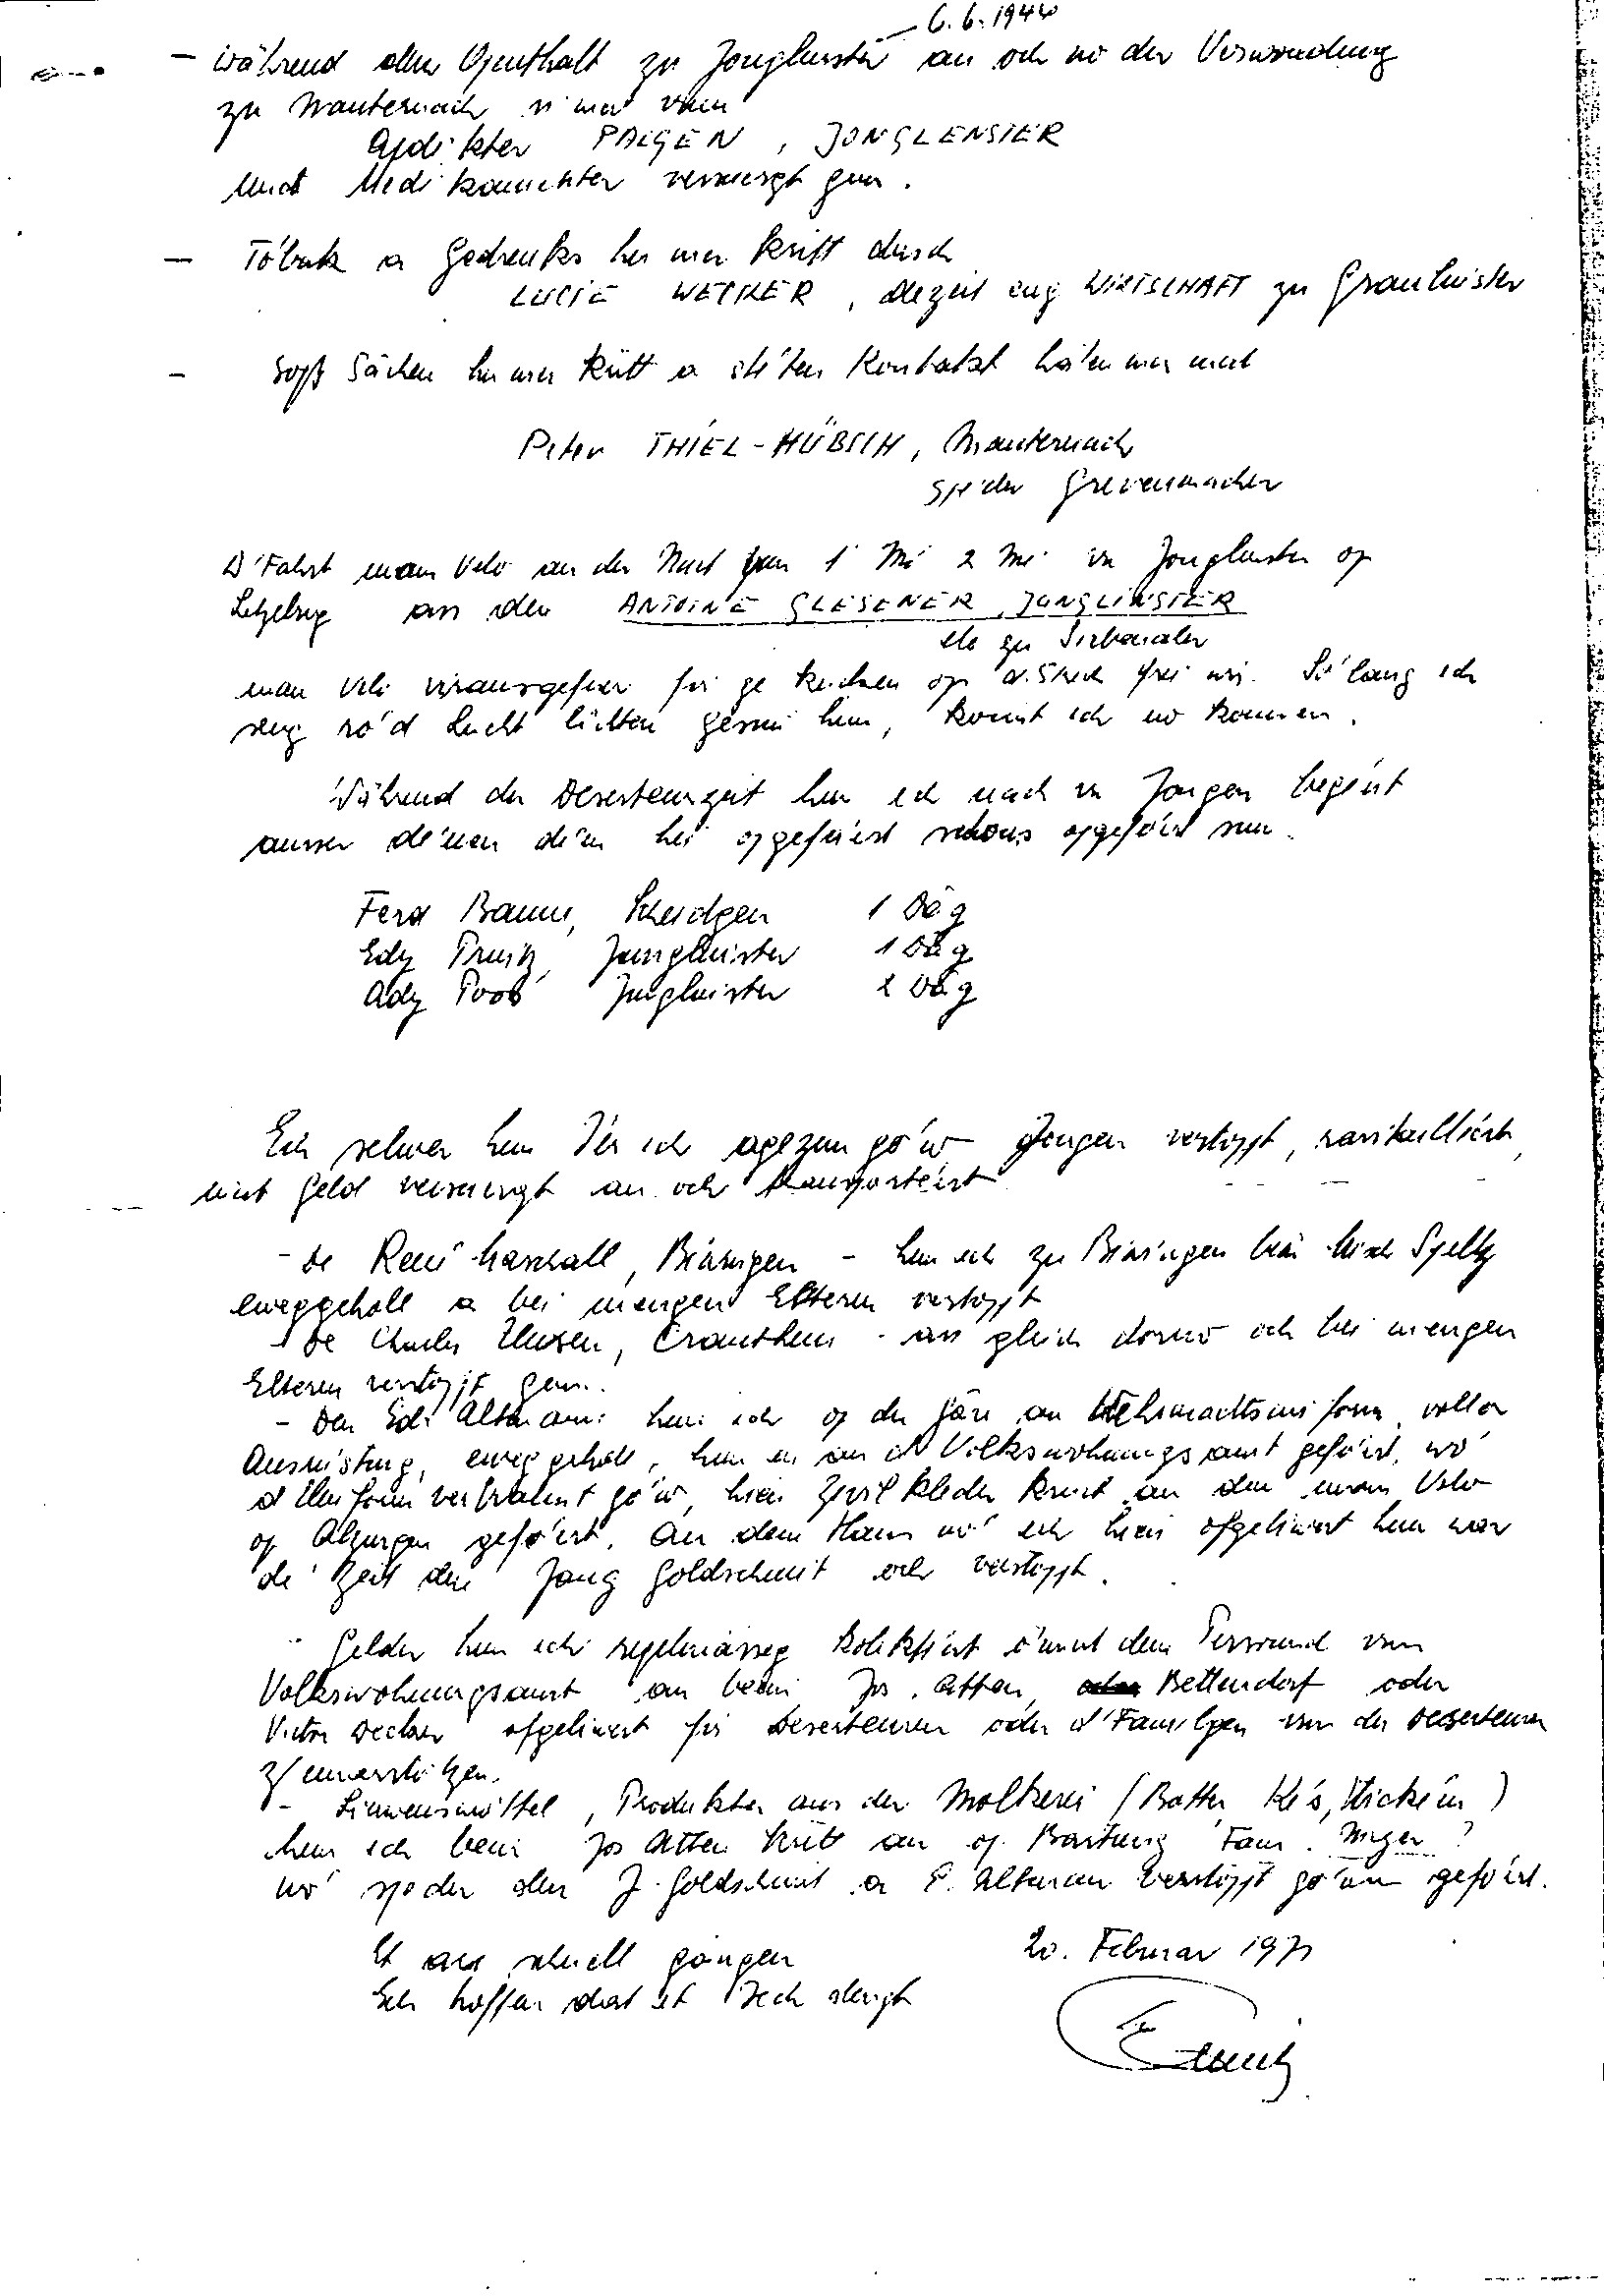 — 6.6.1944
— während dem Openthalt zu Jonglenster an och no der Verwondung
zu Manternach si mer vum
Apdikter PAIGEN, JONGLENSTER
mat Medikamenter versuergt gin.
— Tóbak a Gedrenks hu mer kritt durch
LUCIE WELTER, dezeit eng WIRTSCHAFT zu Graulinster
— soss Sachen hu mer kritt a stéten Kontakt hâten mer mat
Peter THIEL-HÜBSCH, Manternach
spéder Grevenmacher
D'Fahrt mam Velo an der Nuet vum 1 Mé 2 Mé vu Jonglenster op
Letzebuerg ass den ANTOINE GLESENER, JONGLINSTER
bis zu Siebenaler
mam Velo virausgefuer fir ze kucken op d'Streck frei wir. So'lang ech
seng ro'd Lucht liichten gesinn hun, konnt ech no kommen.
Während der Deserteurzeit hun ech nach un Jongen begéint
ausser dénen déi hei opgeféiert schons opgeféiert sin.
Ferd Baum, Scheidgen 1 Dâg
Edy Jonglinster 1 Dâg
Ady Poos Jonglinster 2 Dâg
Ech selwer hun fir ech agezun go'w Jongen verstoppt, ravitailléiert,
mat Geld versuergt an och transportéiert
- De René Marschall, Biwingen - hun ech zu Biwingen beim Misch Speltz
eweggeholl a bei mengen Elteren verstoppt
- De Charles Thesen, Crauthem - ass gleich dorno och bei mengen
Elteren verstoppt gin.
- Den Edi Altmann hun ech op der Gare an Wehrmachtsuniform, voller
Ausrüstung, eweggeholl, hun en an d'Volkswohnungsamt geféiert, wo'
d'Uniform verbrannt go'w, hien Zivilkleder krut an den mam Velo
op Alzingen geféiert. An dem Haus wo' ech hien ofgeliwert hun war
dé Zeit den Jong Goldschmit och verstoppt.
- Gelder hun ech regelmässeg kollektéiert ënnert dem Personal vum
Volkswohnungsamt an beim Jos. Atten, Bettendorf oder
Victor Decker ofgeliwert fir Deserteuren oder d'Familjen vun de Deserteuren
z'ennerstëtzen.
- Liewensmöttel, Produkter aus der Molkerei (Botter, Kés, )
hun ech beim Jos Atten kritt an op Fam. ?
wo' spéder den J. Goldschmit a E. Altmann verstoppt go'wen geféiert.
Et ass schnell gangen
Ech hoffen dat et Iech dengt
20. Februar 1971